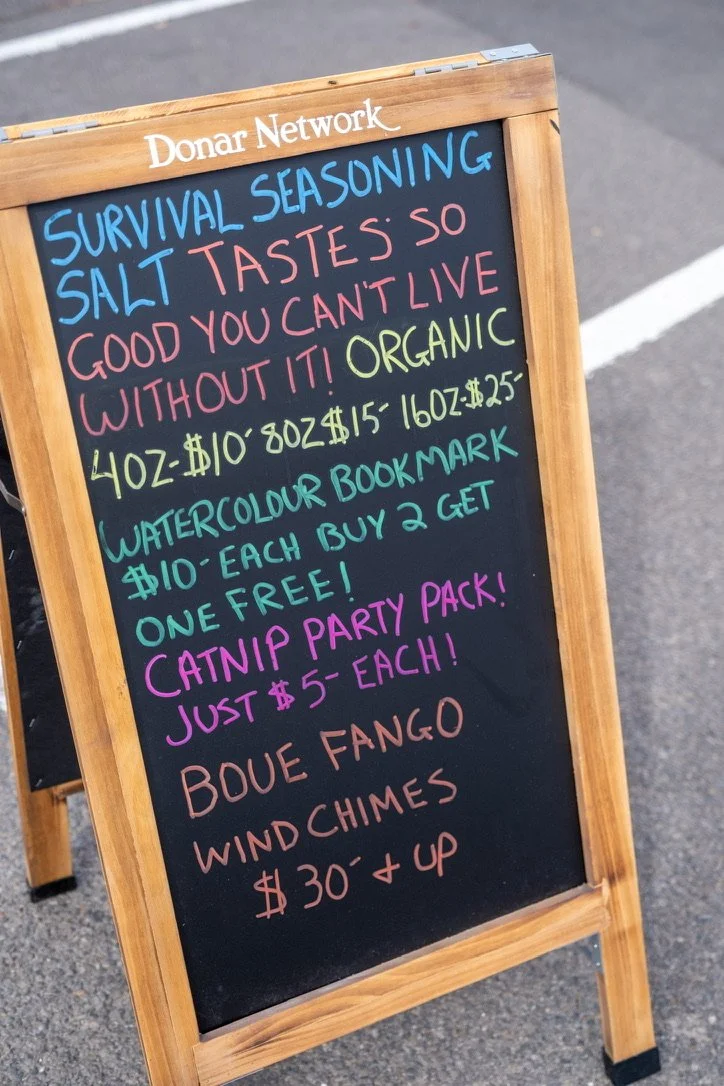 Donar Network
SURVIVAL SEASONING
SALT TASTES SO
GOOD YOU CAN'T LIVE
WITHOUT IT! ORGANIC
4OZ-$10- 8OZ$15- 16OZ-$25-
WATERCOLOUR BOOKMARK
$10- EACH BUY 2 GET
ONE FREE!
CATNIP PARTY PACK!
JUST $5- EACH!
BOUE FANGO
WIND CHIMES
$30- + UP